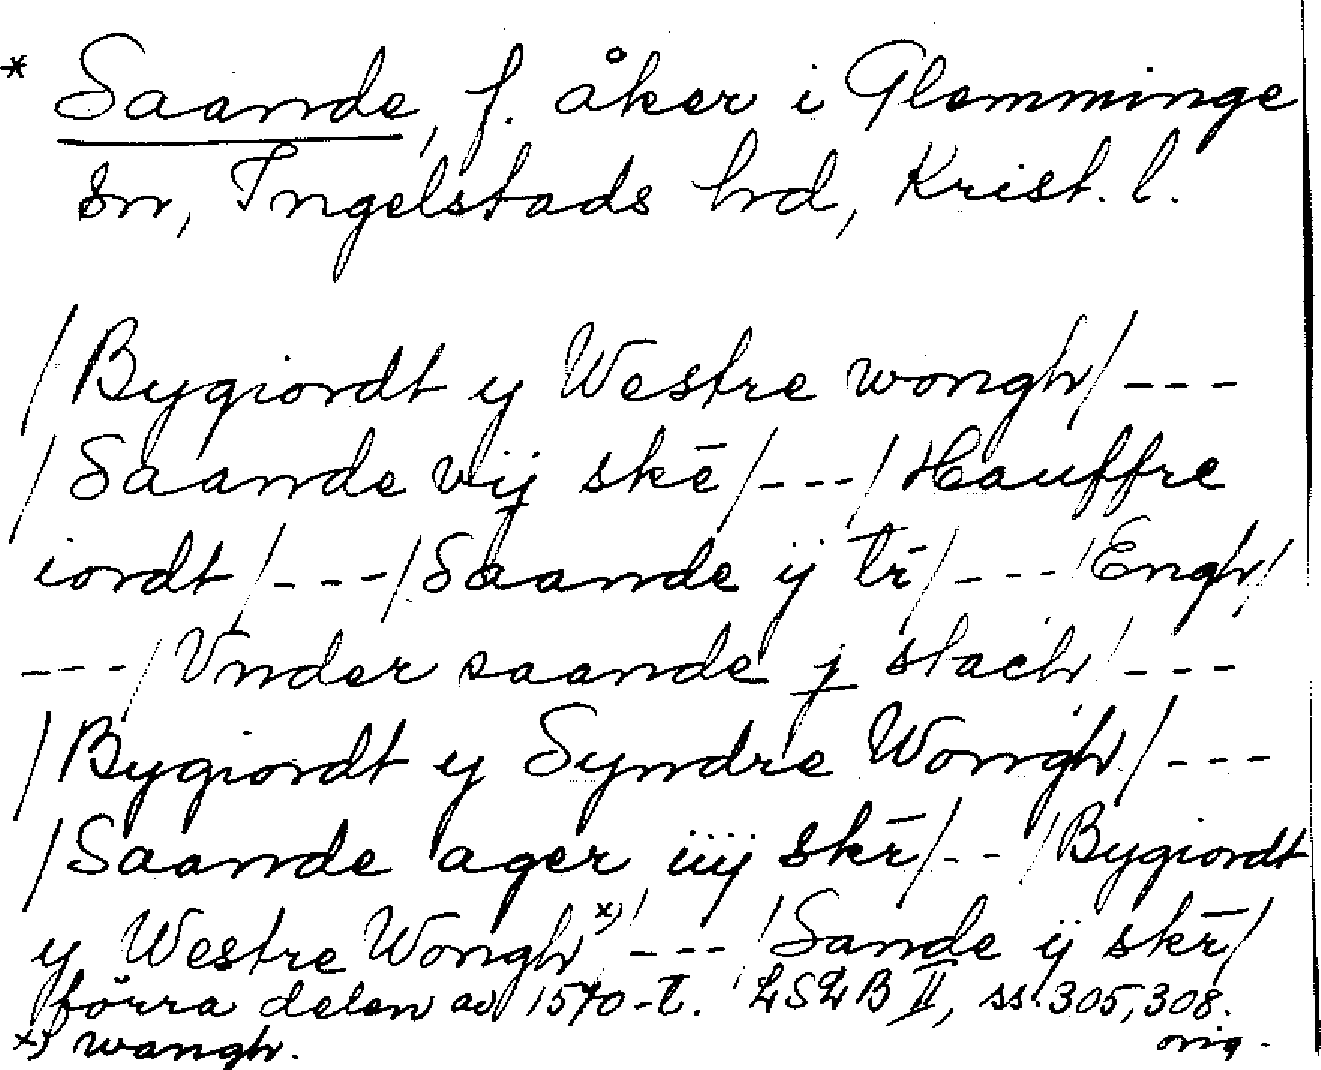 * Saande, f. åker i Glemminge
sn, Ingelstads hd, Krist. l.
/Bygiordt y Westre wongh/ ---
/Saande vij skē/---/Hauffre
iordt/---/Saande ij tr̄/---/Engh/
---/Vnder saande j stach/---
/Bygiordt y Syndre Wongh/---
/Saande ager iiij skr̄/--/Bygiordt
y Westre Wongh x)/---/Sande ij skr̄/
förra delen av 1570-t. LSLB II, ss. 305, 308.
x) wangh. orig.